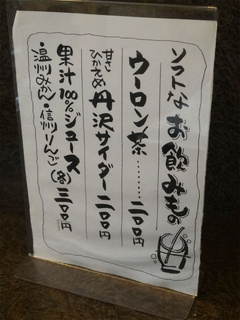 ソフトなお飲みもの
ウーロン茶………二〇〇円
甘さひかえめ
丹沢サイダー二〇〇円
果汁100%ジュース
・温州みかん・信州りんご(各)三〇〇円